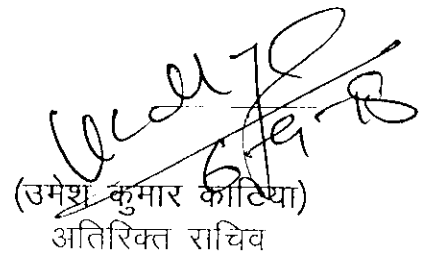 6-9-18
(उमेश कुमार काटिया)
अतिरिक्त सचिव